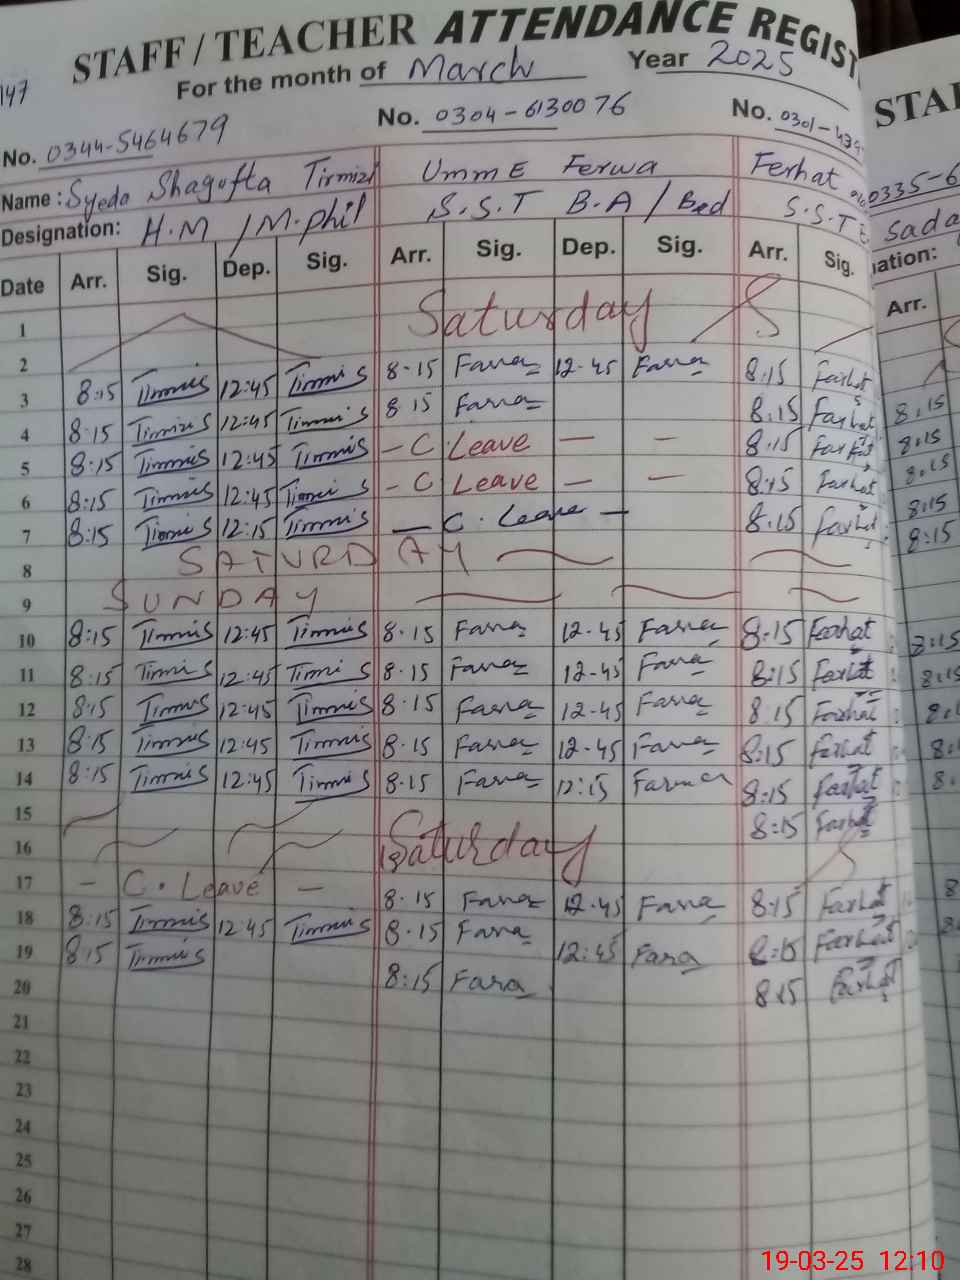 STAFF / TEACHER ATTENDANCE REGIST
147
For the month of March Year 2025
STA
No. 0344-5464679 No. 0304-6130076 No. 0301-439
0335-6
Name: Syeda Shagufta Tirmizi Umm E Ferwa Ferhat
Sada
Designation: H.M / M.phil S.S.T B.A / Bed S.S.T
ation:
Date Arr. Sig. Dep. Sig. Arr. Sig. Dep. Sig. Arr. Sig. Arr.
1 Saturday
2
3 8:15 Tirmis 12:45 Tirmis 8-15 Farwa 12-45 Farwa 8:15 Farhat
4 8:15 Tirmis 12:45 Tirmis 8 15 Farwa 8:15 Farhat 8:15
5 8:15 Tirmis 12:45 Tirmis - C Leave - - 8:15 Farhat 8:15
6 8:15 Tirmis 12:45 Tirmis - C Leave - - 8:15 Farhat 8:15
7 8:15 Tirmis 12:15 Tirmis - C. Leave - 8:15 Farhat 8:15
8:15
8 SATURDAY
9 SUNDAY
10 8:15 Tirmis 12:45 Tirmis 8-15 Farwa 12-45 Farwa 8:15 Farhat 8:15
11 8:15 Tirmis 12:45 Tirmis 8-15 Farwa 12-45 Farwa 8:15 Farhat 8:15
12 8:15 Tirmis 12:45 Tirmis 8-15 Farwa 12-45 Farwa 8:15 Farhat
13 8:15 Tirmis 12:45 Tirmis 8-15 Farwa 12-45 Farwa 8:15 Farhat
14 8:15 Tirmis 12:45 Tirmis 8-15 Farwa 12:15 Farwa 8:15 Farhat
15 8:15 Farhat
16 Saturday
17 - C. Leave - 8-15 Farwa 12-45 Farwa 8:15 Farhat
18 8:15 Tirmis 12:45 Tirmis 8-15 Farwa 12:45 Farwa 8:15 Farhat
19 8:15 Tirmis 8:15 Farwa 8:15 Farhat
20
21
22
23
24
25
26
27
28
19-03-25 12:10